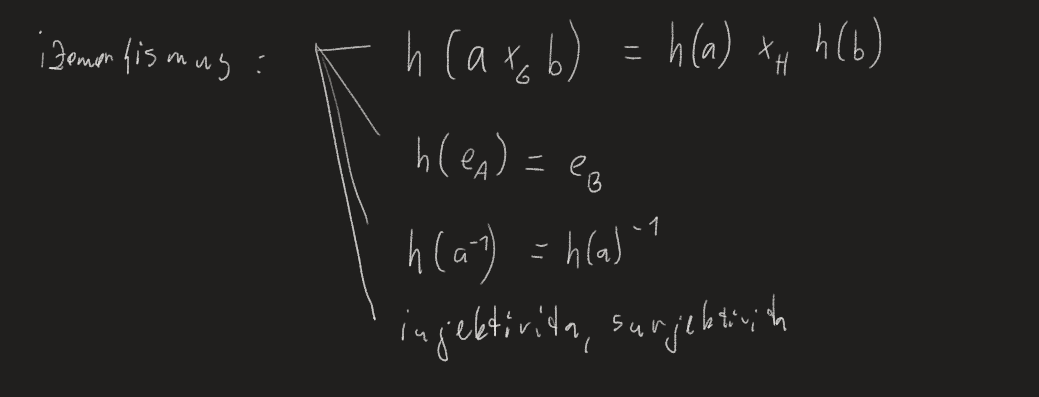 izomorfismus : h(a ×_G b) = h(a) ×_H h(b)
h(e_A) = e_B
h(a⁻¹) = h(a)⁻¹
injektivita, surjektivita